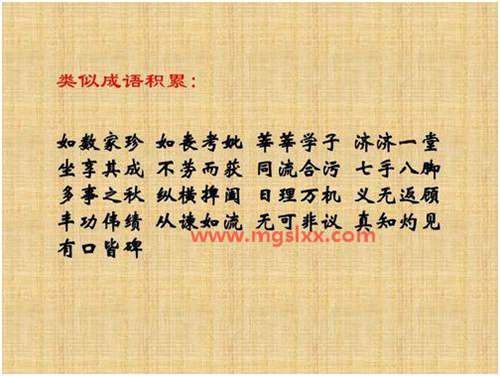 类似成语积累：
如数家珍 如丧考妣 莘莘学子 济济一堂
坐享其成 不劳而获 同流合污 七手八脚
多事之秋 纵横捭阖 日理万机 义无返顾
丰功伟绩 从谏如流 无可非议 真知灼见
www.mgslxx.com
有口皆碑